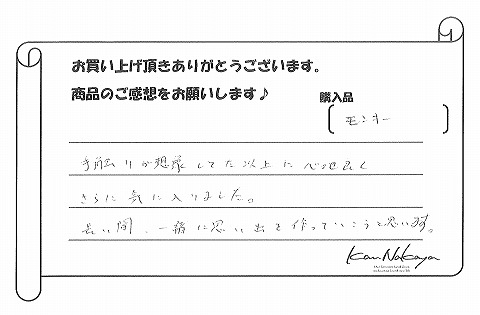 お買い上げ頂きありがとうございます。
商品のご感想をお願いします♪
購入品
モンキー
手触りが想像してた以上に心地良く
さらに気に入りました。
長い間、一緒に思い出を作っていこうと思います。
Kan Nakaya